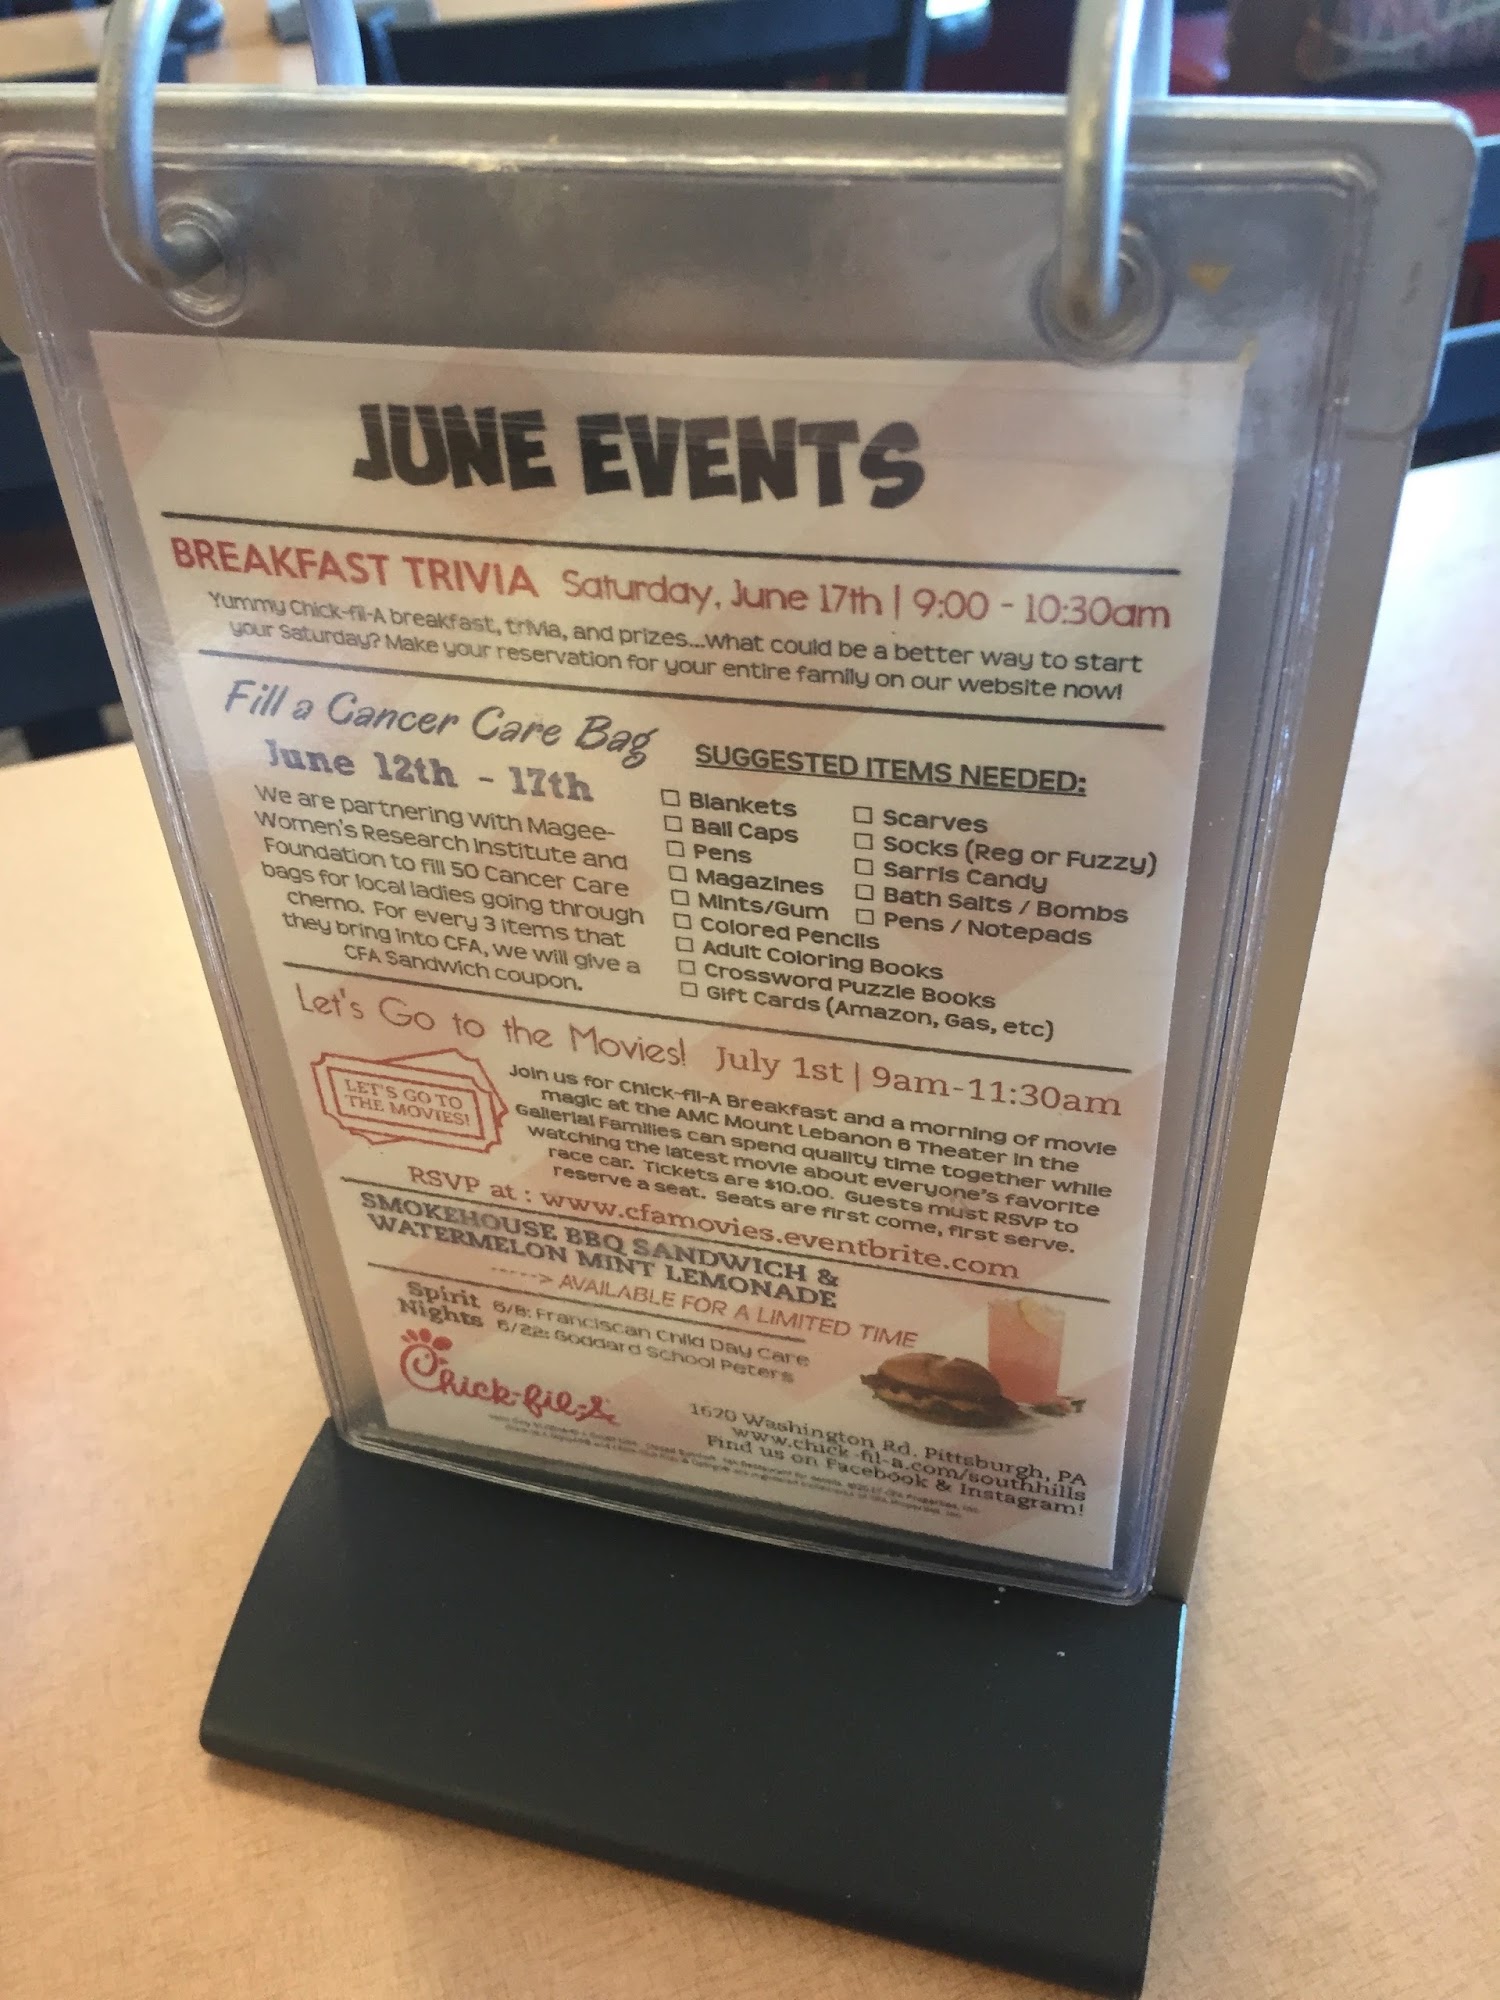 JUNE EVENTS
BREAKFAST TRIVIA Saturday, June 17th | 9:00 - 10:30am
Yummy Chick-fil-A breakfast, trivia, and prizes...what could be a better way to start
your Saturday? Make your reservation for your entire family on our website now!
Fill a Cancer Care Bag
June 12th - 17th
We are partnering with Magee-
Women's Research Institute and
Foundation to fill 50 Cancer Care
bags for local ladies going through
chemo. For every 3 items that
they bring into CFA, we will give a
CFA Sandwich coupon.
SUGGESTED ITEMS NEEDED:
☐ Blankets
☐ Ball Caps
☐ Pens
☐ Magazines
☐ Mints/Gum
☐ Colored Pencils
☐ Adult Coloring Books
☐ Crossword Puzzle Books
☐ Gift Cards (Amazon, Gas, etc)
☐ Scarves
☐ Socks (Reg or Fuzzy)
☐ Sarris Candy
☐ Bath Salts / Bombs
☐ Pens / Notepads
Let's Go to the Movies! July 1st | 9am-11:30am
LET'S GO TO
THE MOVIES!
Join us for Chick-fil-A Breakfast and a morning of movie
magic at the AMC Mount Lebanon 6 Theater in the
Galleria! Families can spend quality time together while
watching the latest movie about everyone's favorite
race car. Tickets are $10.00. Guests must RSVP to
reserve a seat. Seats are first come, first serve.
RSVP at : www.cfamovies.eventbrite.com
SMOKEHOUSE BBQ SANDWICH &
WATERMELON MINT LEMONADE
-----> AVAILABLE FOR A LIMITED TIME
Spirit
Nights
6/8: Franciscan Child Day Care
6/22: Goddard School Peters
Chick-fil-A
1620 Washington Rd. Pittsburgh, PA
www.chick-fil-a.com/southhills
Find us on Facebook & Instagram!